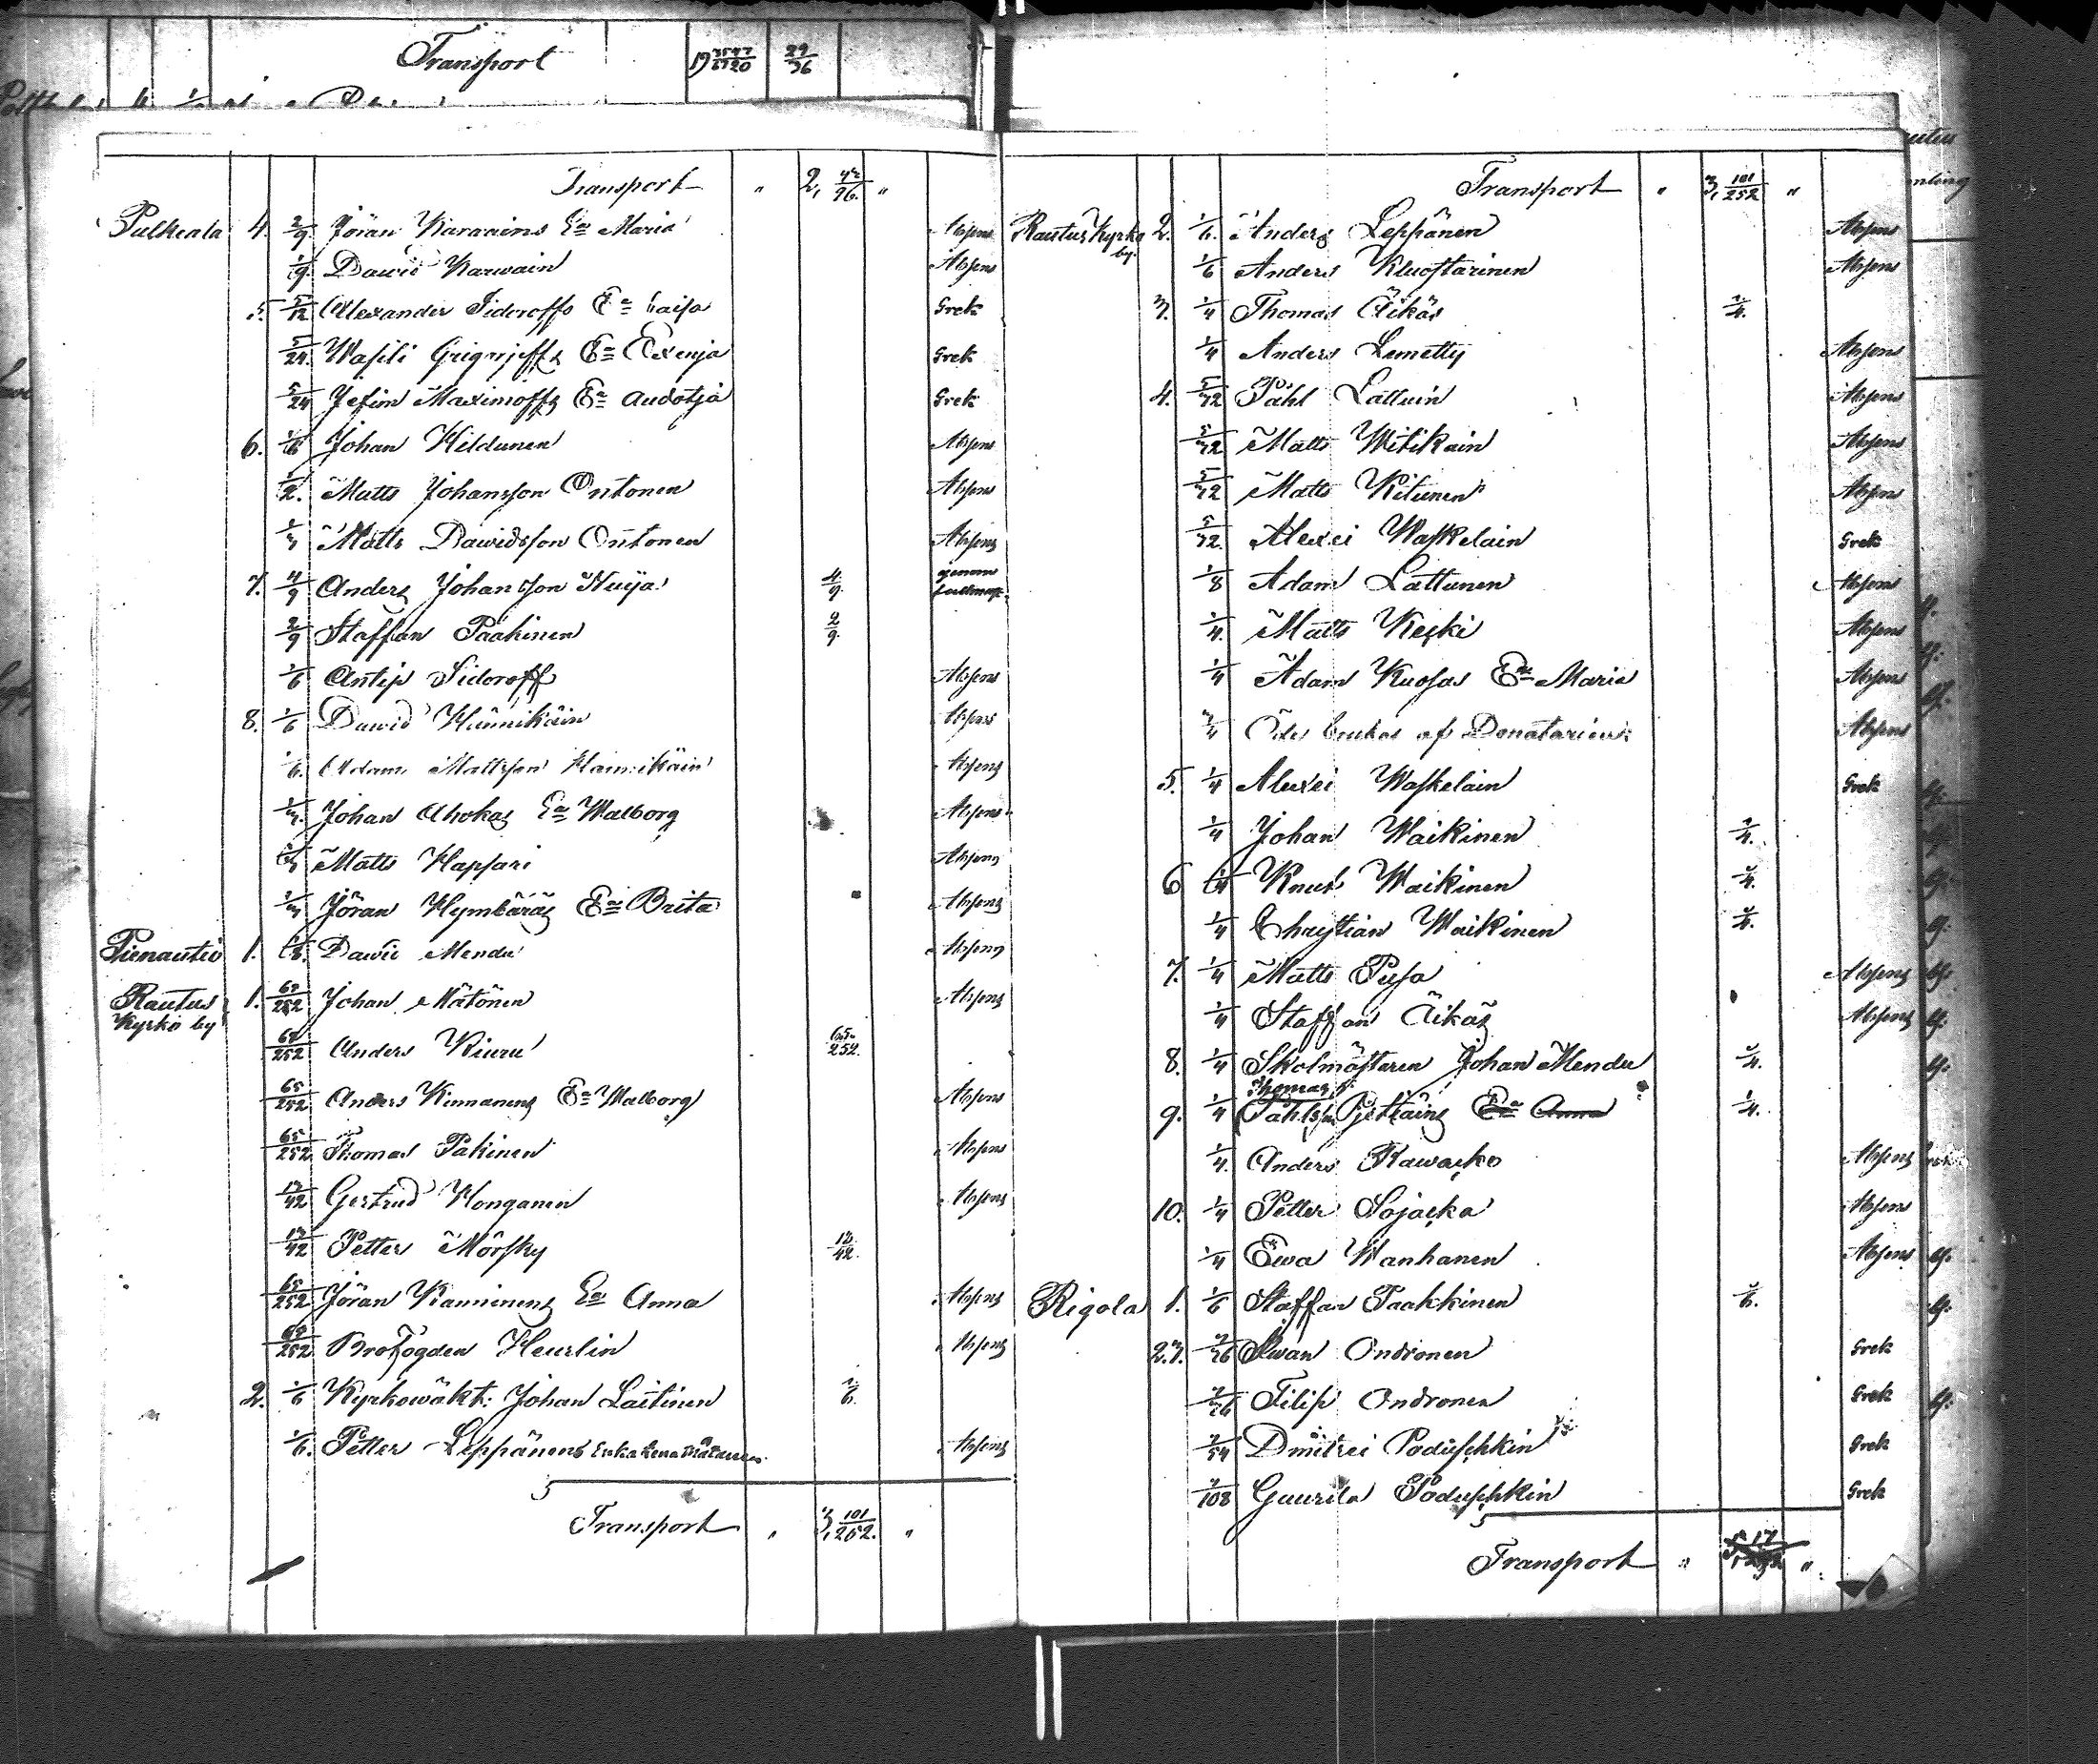 Transport 19 29/36
Transport " 2, 42/96. "
Pulkeala 4. 2/9. Jöran Karvains Ea Maria Absens
1/9. Dawid Karwain Absens
5. 5/12 Alexander Sidoroffs Ea Caisa Grek
5/24. Wasili Grigorjeffs Ea Axenja Grek
5/24 Jefim Maximoffs Ea Audotja Grek
6. 1/6 Johan Hildunen Absens
1/2. Matts Johansson Ontonen Absens
1/3 Matts Dawidsson Ontonen Absens
7. 4/9 Anders Johansson Nuija 4/9.
2/9 Staffan Paakinen 2/9.
1/6 Antip Sidoroff Absens
8. 1/6 Dawid Hännikäin Absens
1/6. Adam Mattsson Hännikäin Absens
Johan Ahokas Ea Walborg Absens
Matts Hapsari Absens
Jöran Hymbäräs Ea Brita Absens
Pienautio 1. Dawid Mendu Absens
Rautus Kyrko by 1. 65/252 Johan Mätönen Absens
65/252 Anders Kiuru 65/252.
65/252 Anders Kinnanens Ea Walborg Absens
65/252 Thomas Pakinen Absens
13/42 Gertrud Honganen Absens
13/42 Petter Mörsky 13/42.
65/252 Jöran Kanninens Ea Anna Absens
65/252 Brofogden Heurlin Absens
2. 1/6 Kyrkowäkt: Johan Laitinen 1/6.
1/6. Petter Leppänens Enka Lena Mätänen Absens
Transport " 3, 101/252. "
Transport " 3, 101/252 "
Rautus Kyrko by. 2. 1/6. Anders Leppänen Absens
1/6 Anders Kluostarinen Absens
3. 1/4 Thomas Äikäs 1/4.
1/4 Anders Lemetty Absens
4. 5/72 Påhl Lattuin Absens
5/72 Matts Witikain Absens
5/72 Matts Kitunen Absens
5/72 Alexei Waskelain Grek
1/8 Adam Lattunen Absens
1/4. Matts Keski Absens
1/4 Adam Kuosas Ea Maria Absens
Öde brukas af Donatarien: Absens
5. 1/4 Alexei Waskelain Grek
1/4 Johan Waikinen 1/4.
6 1/4 Knut Waikinen 1/4.
1/4 Christian Waikinen 1/4.
7. 1/4 Matts Pusa Absens
1/4 Staffan Äikäs Absens
8. 1/4 Skolmästaren Johan Mendu 1/4.
Thomas
9. 1/4 Påhlss. Pjettäins Ea Anna 1/4.
1/4. Anders Kawasko Absens
10. 1/4 Petter Sojacka Absens
1/4 Ewa Wanhanen Absens
Rigola 1. 1/6 Staffan Paakkinen 1/6.
2.3. Iwan Ondronen Grek
Filip Ondronen Grek
Dmitrei Poduschkin Grek
Gaurila Poduschkin Grek
Transport " "